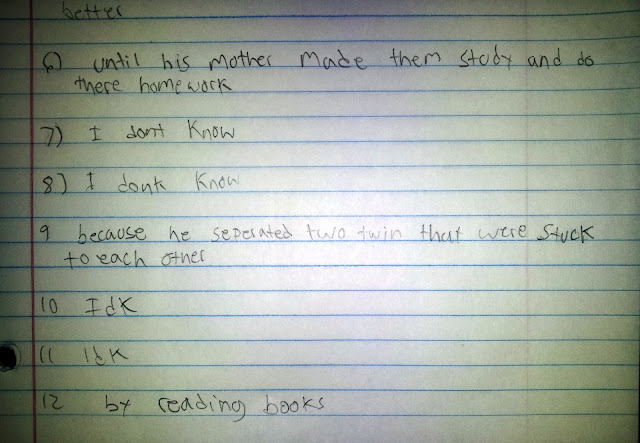 better
6) until his mother made them study and do
there homework
7) I dont know
8) I dontk know
9 because he seperated two twin that were stuck
to each other
10 Idk
11 Idk
12 by reading books